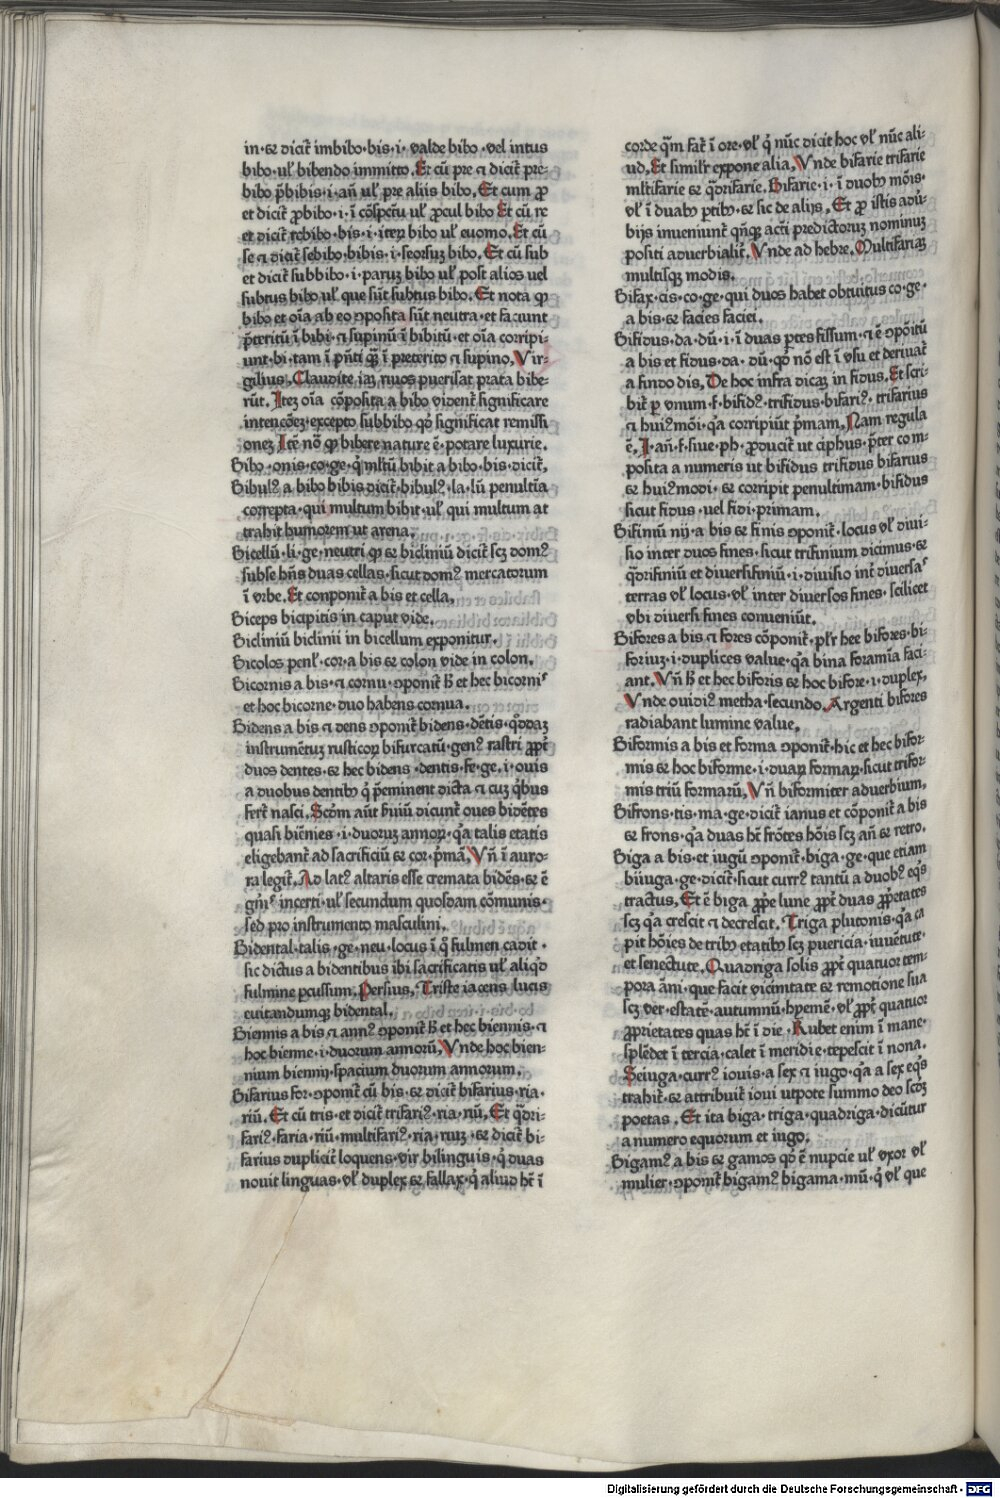 in·et dicit̄ imbibo·bis·i· valde bibo·vel intus
bibo·ul' bibendo immitto. Et cū pre et dicit̄ pre⸗
bibo p̄bibis·i·an̄ ul' pre aliis bibo. Et cum ꝓ
et dicit ꝓbibo·i·ī cōspectu ul' ꝓcul bibo Et cū re
et dicit̄ rebibo·bis·i·iterꝫ bibo ul' euomo. Et cū
se et dicit̄ sebibo·bibis·i·seorsuꝫ bibo. Et cū sub
et dicit̄ subbibo·i·paruꝫ bibo ul' post alios uel
subtus bibo ul' que sūt subtus bibo. Et nota ꝙ
bibo et oīa ab eo ꝯposita sūt neutra·et faciunt
p̄teritū ī bibi·et supinū ī bibitū·et oīa corripi⸗
unt·bi·tam ī pn̄ti qꝫ ī preterito et supino. Vir⸗
gilius. Claudite iaꝫ riuos pueri sat prata bibe⸗
rūt. Iteꝫ oīa cōposita a bibo vident̄ significare
intencōeꝫ·excepto subbibo qd' significat remissi
oneꝫ Itē nō ꝙ bibere nature ē·potare luxurie.
Bibo·onis·co·ge·q̇ mltū bibit a bibo·bis·dicit̄.
Bibulꝰ a bibo bibis dicit̄·bibulꝰ·la·lū penultīa
correpta·qui multum bibit·ul' qui multum at
trahit humorem ut arena.
Bicellū·li·ge·neutri ꝙ et bicliniū dicit̄ scꝫ domꝰ
subse hn̄s duas cellas·sicut domꝰ mercatorum
ī vrbe. Et conponit̄ a bis et cella.
Biceps bicipitis in caput vide.
Bicliniū biclinii in bicellum exponitur.
Bicolos penl'·cor·a bis et colon vide in colon.
Bicornis a bis·et cornu·ꝯponit̄ h̄ et hec bicornis
et hoc bicorne·duo habens cornua.
Bidens a bis et dens ꝯponit̄ bidens·dētis·q̄ddaꝫ
instrumētuꝫ rusticoꝝ bifurcatū·genꝰ rastri ꝓpt̄
duos dentes·et hec bidens·dentis·fe·ge·i·ouis
a duobus dentibꝫ q̇ p̄eminent dicta et cuꝫ q̇bus
fert̄ nasci. Scd'm aūt hūiū dicunt̄ oues bidētes
quasi biēnies·i·duoruꝫ annoꝝ·q̇a talis etatis
eligebant̄ ad sacrificiū et cor·p̄mā. Vn̄ ī auro⸗
ra legit̄. Ad latꝰ altaris esse cremata bidēs·et ē
gn̄is incerti·ul' secundum quosdam cōmunis·
sed pro instrumento masculini.
Bidental·talis·ge·neu·locus ī q̊ fulmen cadit·
sic dictus a bidentibus ibi sacrificatis ul' aliq̊d
fulmine ꝑcussum. Persius. Triste iacens lucis
euitandumqꝫ bidental.
Biennis a bis et annꝰ ꝯponit̄ h̄ et hec biennis·et
hoc bienne·i·duorum annorū. Vnde hoc bien⸗
nium biennij·spacium duorum annorum.
Bifarius for·ꝯponit̄ cū bis·et dicit̄ bifarius·ria·
riū. Et cū tris·et dicit̄ trifariꝰ·ria·riū. Et q̄dri⸗
fariꝰ·faria·riū·multifariꝰ·ria·ruꝫ·et dicit̄ bi⸗
farius duplicit̄ loquens·vir bilinguis·q̇ duas
nouit linguas·vl' duplex et fallax·q̇ aliud ht̄ ī
corde q̄m fat̄ ī ore·vl' q̇ nūc dicit hoc vl' nūc ali⸗
ud. Et simil'r expone alia. Vnde bifarie trifarie
mltifarie et q̄drifarie. Bifarie·i·ī duobꝫ mōis·
vl' ī duabꝫ ꝑtibꝫ·et sic de alijs. Et ꝓ istis aduer⸗
bijs inueniunt̄ qn̄qꝫ acti predictoruꝫ nominuꝫ
positi aduerbialit̄. Vnde ad hebre. Multifariaꝫ
multisqꝫ modis.
Bifax·cis·co·ge·qui duos habet obtuitus co·ge·
a bis·et facies faciei.
Bifidus·da·dū·i·ī duas ꝑtes fissum·et ē ꝯpoitū
a bis et fidus·da·dū·qd' nō est ī vsu et deriuat̄
a findo dis. De hoc infra dicaꝫ in fidus. Et scri⸗
bit̄ ꝑ vnum·f·bifidꝰ·trifidus·bifariꝰ·trifarius
et huiꝰmōi·q̇a corripiūt p̄mam. Nam regula
ē. I·an̄·f·siue·ph·ꝓducit̄ ut ciphus·p̄ter com⸗
posita a numeris ut bifidus trifidus bifarius
et huiꝰmodi·et corripit penultimam·bifidus
sicut fidus·uel fidi·primam.
Bifiniū nij·a bis et finis ꝯponit̄·locus vl' diui⸗
sio inter duos fines·sicut trifinium dicimus·et
q̄drifiniū et diuersifiniū·i·diuisio int̄ diuersas
terras vl' locus·vl' inter diuersos fines·scilicet
vbi diuersi fines conueniūt.
Bifores a bis et fores cōponit̄·pl'r hee bifores·bi⸗
foriuꝫ·i·duplices value·q̇a bina foramīa faci⸗
ant. Vn̄ h̄ et hec biforis et hoc bifore·i·duplex.
Vnde ouidiꝰ metha·secundo. Argenti bifores
radiabant lumine value.
Biformis a bis et forma ꝯponit̄·hic et hec bifor⸗
mis et hoc biforme·i·duaꝝ formaꝝ·sicut trifor⸗
mis triū formarū. Vn̄ biformiter aduerbium.
Bifrons·tis·ma·ge·dicit̄ ianus et cōponit̄ a bis
et frons·q̇a duas ht̄ frōtes hōis scꝫ an̄ et retro.
Biga a bis·et iugū ꝯponit̄·biga·ge·que etiam
biiuga·ge·dicit̄·sicut currꝰ tantū a duobꝰ eq̇s
tractus. Et ē biga ꝓpe lune ꝓpt̄ duas ꝓp̄etates
scꝫ q̇a crescit et decrescit. Triga plutonis·q̇a ca
pit hōies de tribꝫ etatibꝫ scꝫ puericia·iuuētute·
et senectute. Quadriga solis ꝓpt̄ quatuor tem⸗
pora āni·que facit vicinitate et remotione sua
scꝫ ver·estatē·autumnū·hyemē·vl' ꝓpt̄ quatuor
ꝓprietates quas ht̄ ī die. Rubet enim ī mane·
splēdet ī tercia·calet ī meridie·tepescit ī nona.
Seiuga·currꝰ iouis·a sex et iugo·q̇a a sex eq̇s
trahit̄·et attribuit̄ ioui utpote summo deo scd'ꝫ
poetas. Et ita biga·triga·quadriga·dicūtur
a numero equorum et iugo.
Bigamꝰ a bis et gamos qd' ē nupcie ul' vxor vl'
mulier·ꝯponit̄ bigamꝰ bigama·mū·q̇ vl' que
Digitalisierung gefördert durch die Deutsche Forschungsgemeinschaft · DFG